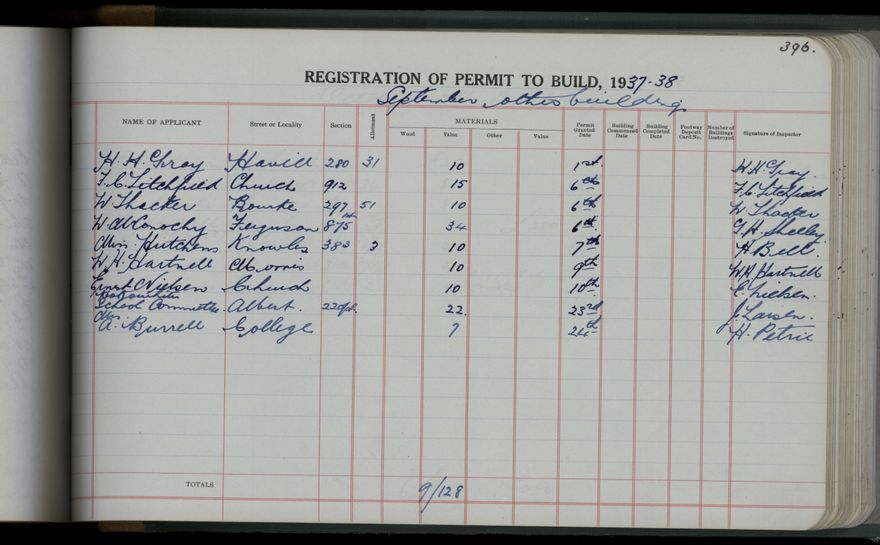 396.
REGISTRATION OF PERMIT TO BUILD, 1937-38
September other building
NAME OF APPLICANT Street or Locality Section Allotment MATERIALS Wood Value Other Value Permit Granted Date Building Commenced Date Building Completed Date Footway Deposit Card No. Number of Buildings Destroyed Signature of Inspector
H. H. Gray Havill 280 31 10 1st W. H. Gray.
F. C. Litchfield Church 912 15 6th F. C. Litchfield
W Thacker Bourke 297 51 10 6th W Thacker
W McConochy Ferguson 875 34 6th G. H. Shelley.
Mrs. Hutchens Knowles 383 3 10 7th H Bell
W. H. Hartnell Morris 10 9th W. H. Hartnell
Ernest C Nielsen Church 10 10th E. Nielsen.
School Committee. Albert. 22. 23rd J. Larsen.
Mrs. A. Burrell College 7 24th H. Petrie
TOTALS 9/128